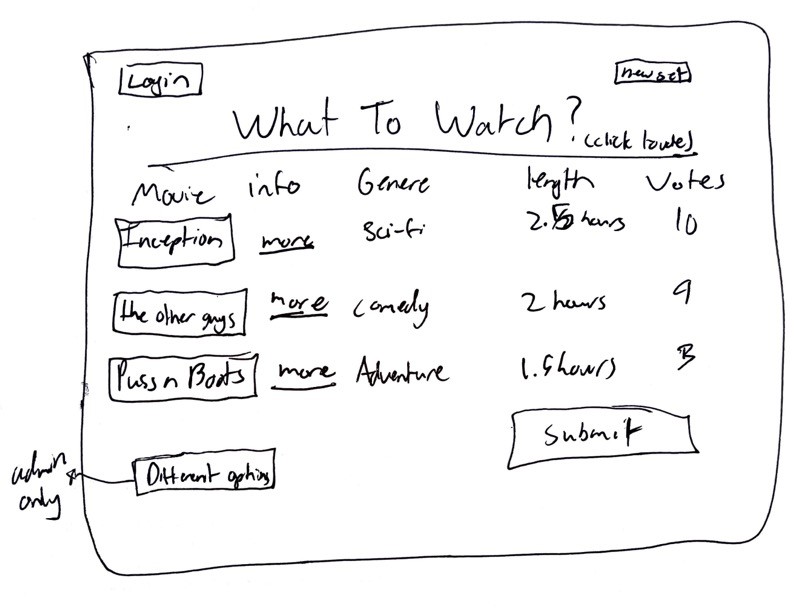 Login
new set
What To Watch?
(click to vote)
Movie info Genere length Votes
Inception more Sci-fi 2.5 hours 10
the other guys more comedy 2 hours 9
Puss n Boots more Adventure 1.5 hours 3
Submit
admin only
Different options